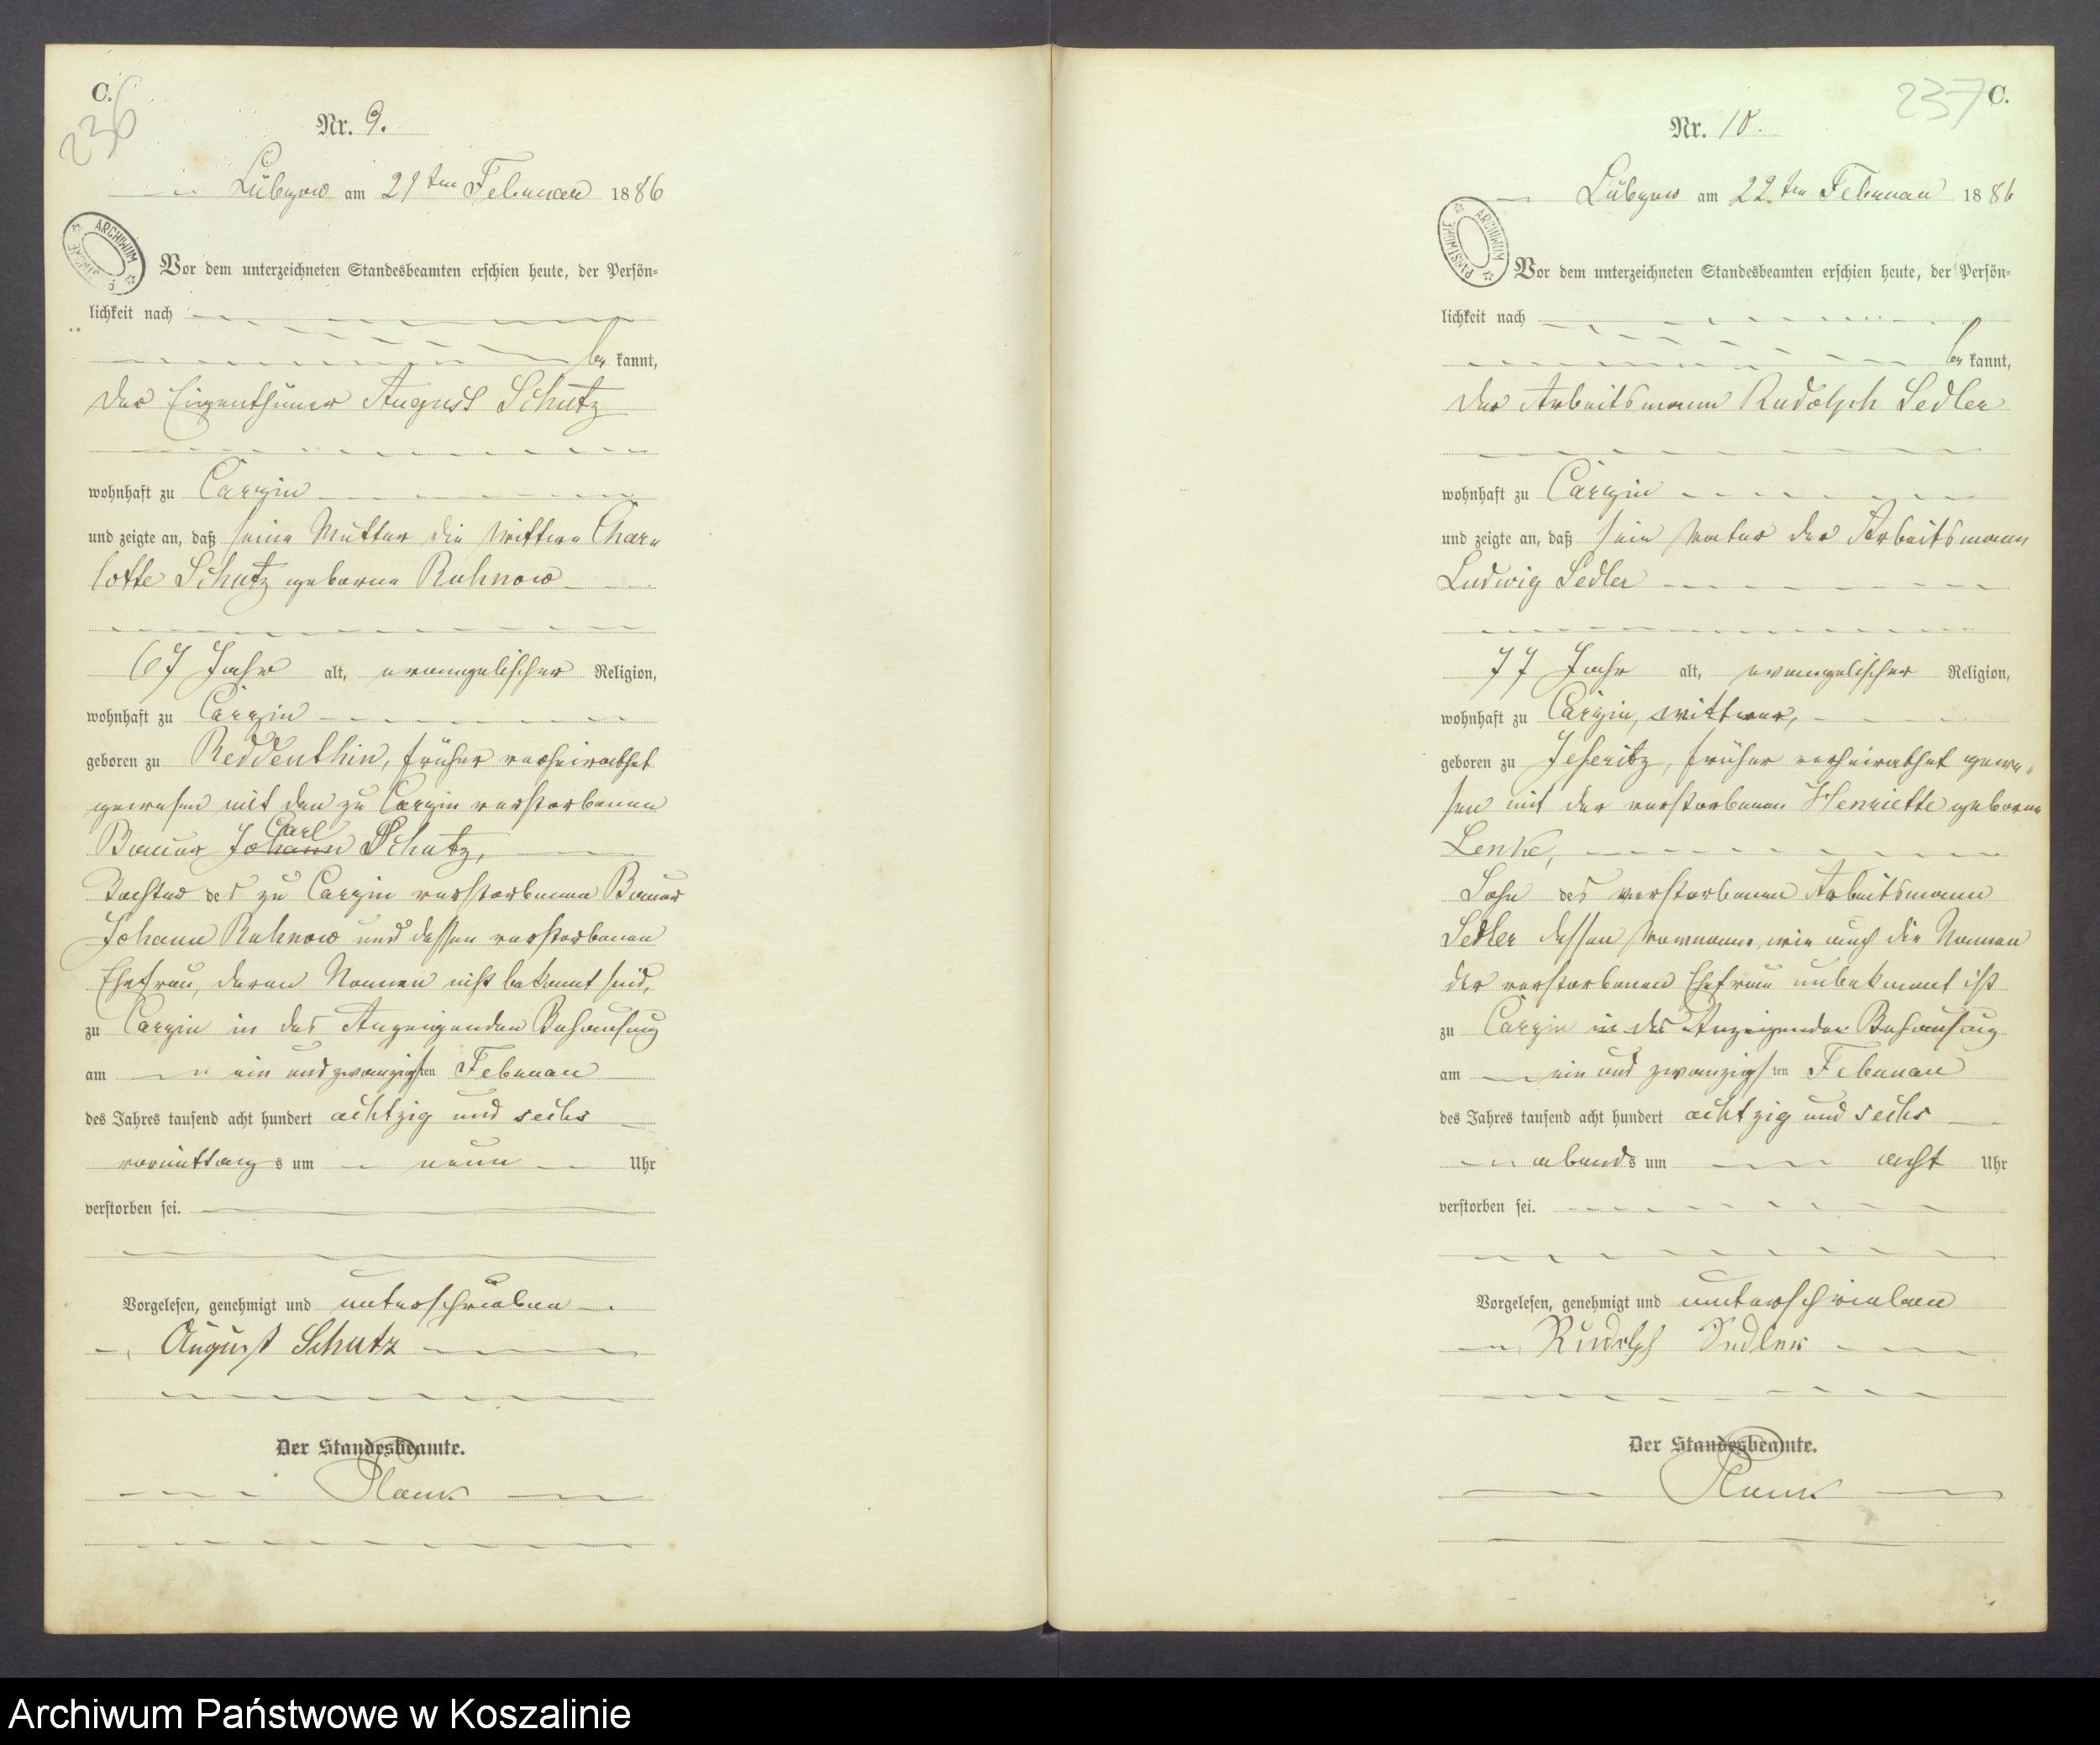 C.
236
Nr. 9.
Lübzow am 21ten Februar 1886
ARCHIWUM
Vor dem unterzeichneten Standesbeamten erschien heute, der Persön-
lichkeit nach
be kannt,
der Eigenthümer August Schutz
wohnhaft zu Carzin
und zeigte an, daß seine Mutter die Wittwe Char-
lotte Schutz geborne Ruhnow
67 Jahr alt, evangelischer Religion,
wohnhaft zu Carzin
geboren zu Reddenthin, früher verheirathet
gewesen mit den zu Carzin verstorbenen
Bauer Johann Carl Schutz,
Tochter des zu Carzin verstorbenen Bauer
Johann Ruhnow und dessen verstorbenen
Ehefrau, deren Namen nicht bekannt sind,
zu Carzin in des Anzeigenden Behausung
am ein und zwanzigsten Februar
des Jahres tausend acht hundert achtzig und sechs
vormittags um neun Uhr
verstorben sei.
Vorgelesen, genehmigt und unterschrieben
August Schutz
Der Standesbeamte.
237
C.
Nr. 10.
Lübzow am 22.ten Februar 1886
ARCHIWUM PAŃSTWOWE
Vor dem unterzeichneten Standesbeamten erschien heute, der Persön-
lichkeit nach
be kannt,
der Arbeitsmann Rudolph Sedler
wohnhaft zu Carzin
und zeigte an, daß sein Vater der Arbeitsmann
Ludwig Sedler
77 Jahr alt, evangelischer Religion,
wohnhaft zu Carzin, Wittwer,
geboren zu Jeseritz, früher verheirathet gewe-
sen mit der verstorbenen Henriette geborne
Lenke,
Sohn des verstorbenen Arbeitsmann
Sedler dessen Vorname, wie auch die Namen
der verstorbenen Ehefrau unbekannt ist
zu Carzin in des Anzeigenden Behausung
am ein und zwanzigsten Februar
des Jahres tausend acht hundert achtzig und sechs
abends um acht Uhr
verstorben sei.
Vorgelesen, genehmigt und unterschrieben
Rudolph Sedler
Der Standesbeamte.
Archiwum Państwowe w Koszalinie